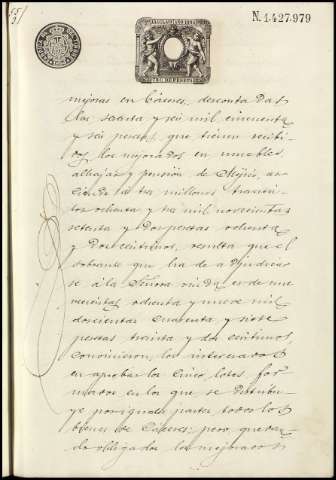 N. 1.427.979
mejoras en Cáceres, descontadas
las sesenta y seis mil cincuenta
y seis pesetas, que tienen recibi-
dos los mejorados en muebles,
alhajas y pensión de Mejico, as-
ciende a tres millones trescien-
tos ochenta y tres mil novecientas
setenta y dos pesetas ochenta
y dos centimos, resulta que el
sobrante que ha de adjudicar-
se á la Señora viuda es de nue-
vecientas ochenta y nueve mil
doscientas cuarenta y siete
pesetas treinta y dos centimos,
convinieron los interesados
en aprobar los cinco lotes for-
mados en los que se distribu-
ye por iguales partes todos los
bienes de Cáceres; pero, quedan-
do obligados los mejorados